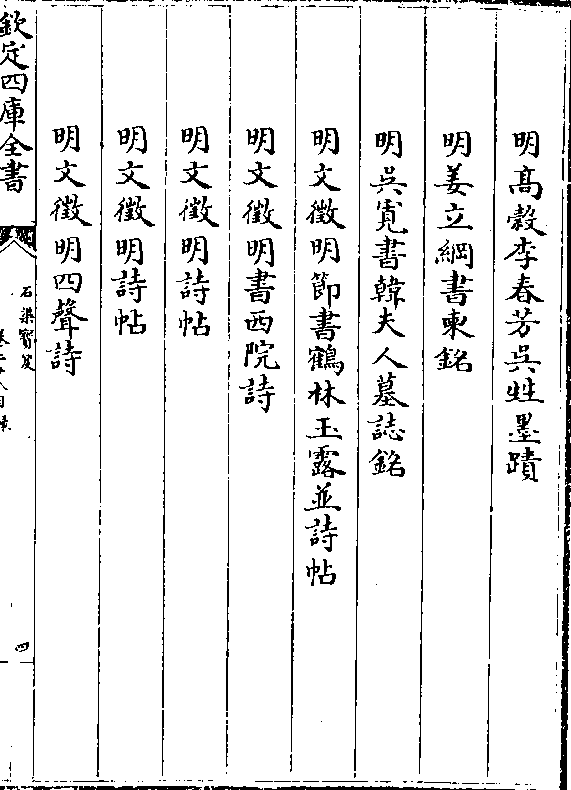 明高穀李春芳吳甡墨蹟
明姜立綱書東銘
明吳寛書韓夫人墓誌銘
明文徵明節書鶴林玉露並詩帖
明文徵明書西院詩
明文徵明詩帖
明文徵明詩帖
明文徵明四聲詩
欽定四庫全書
石渠寶笈
四